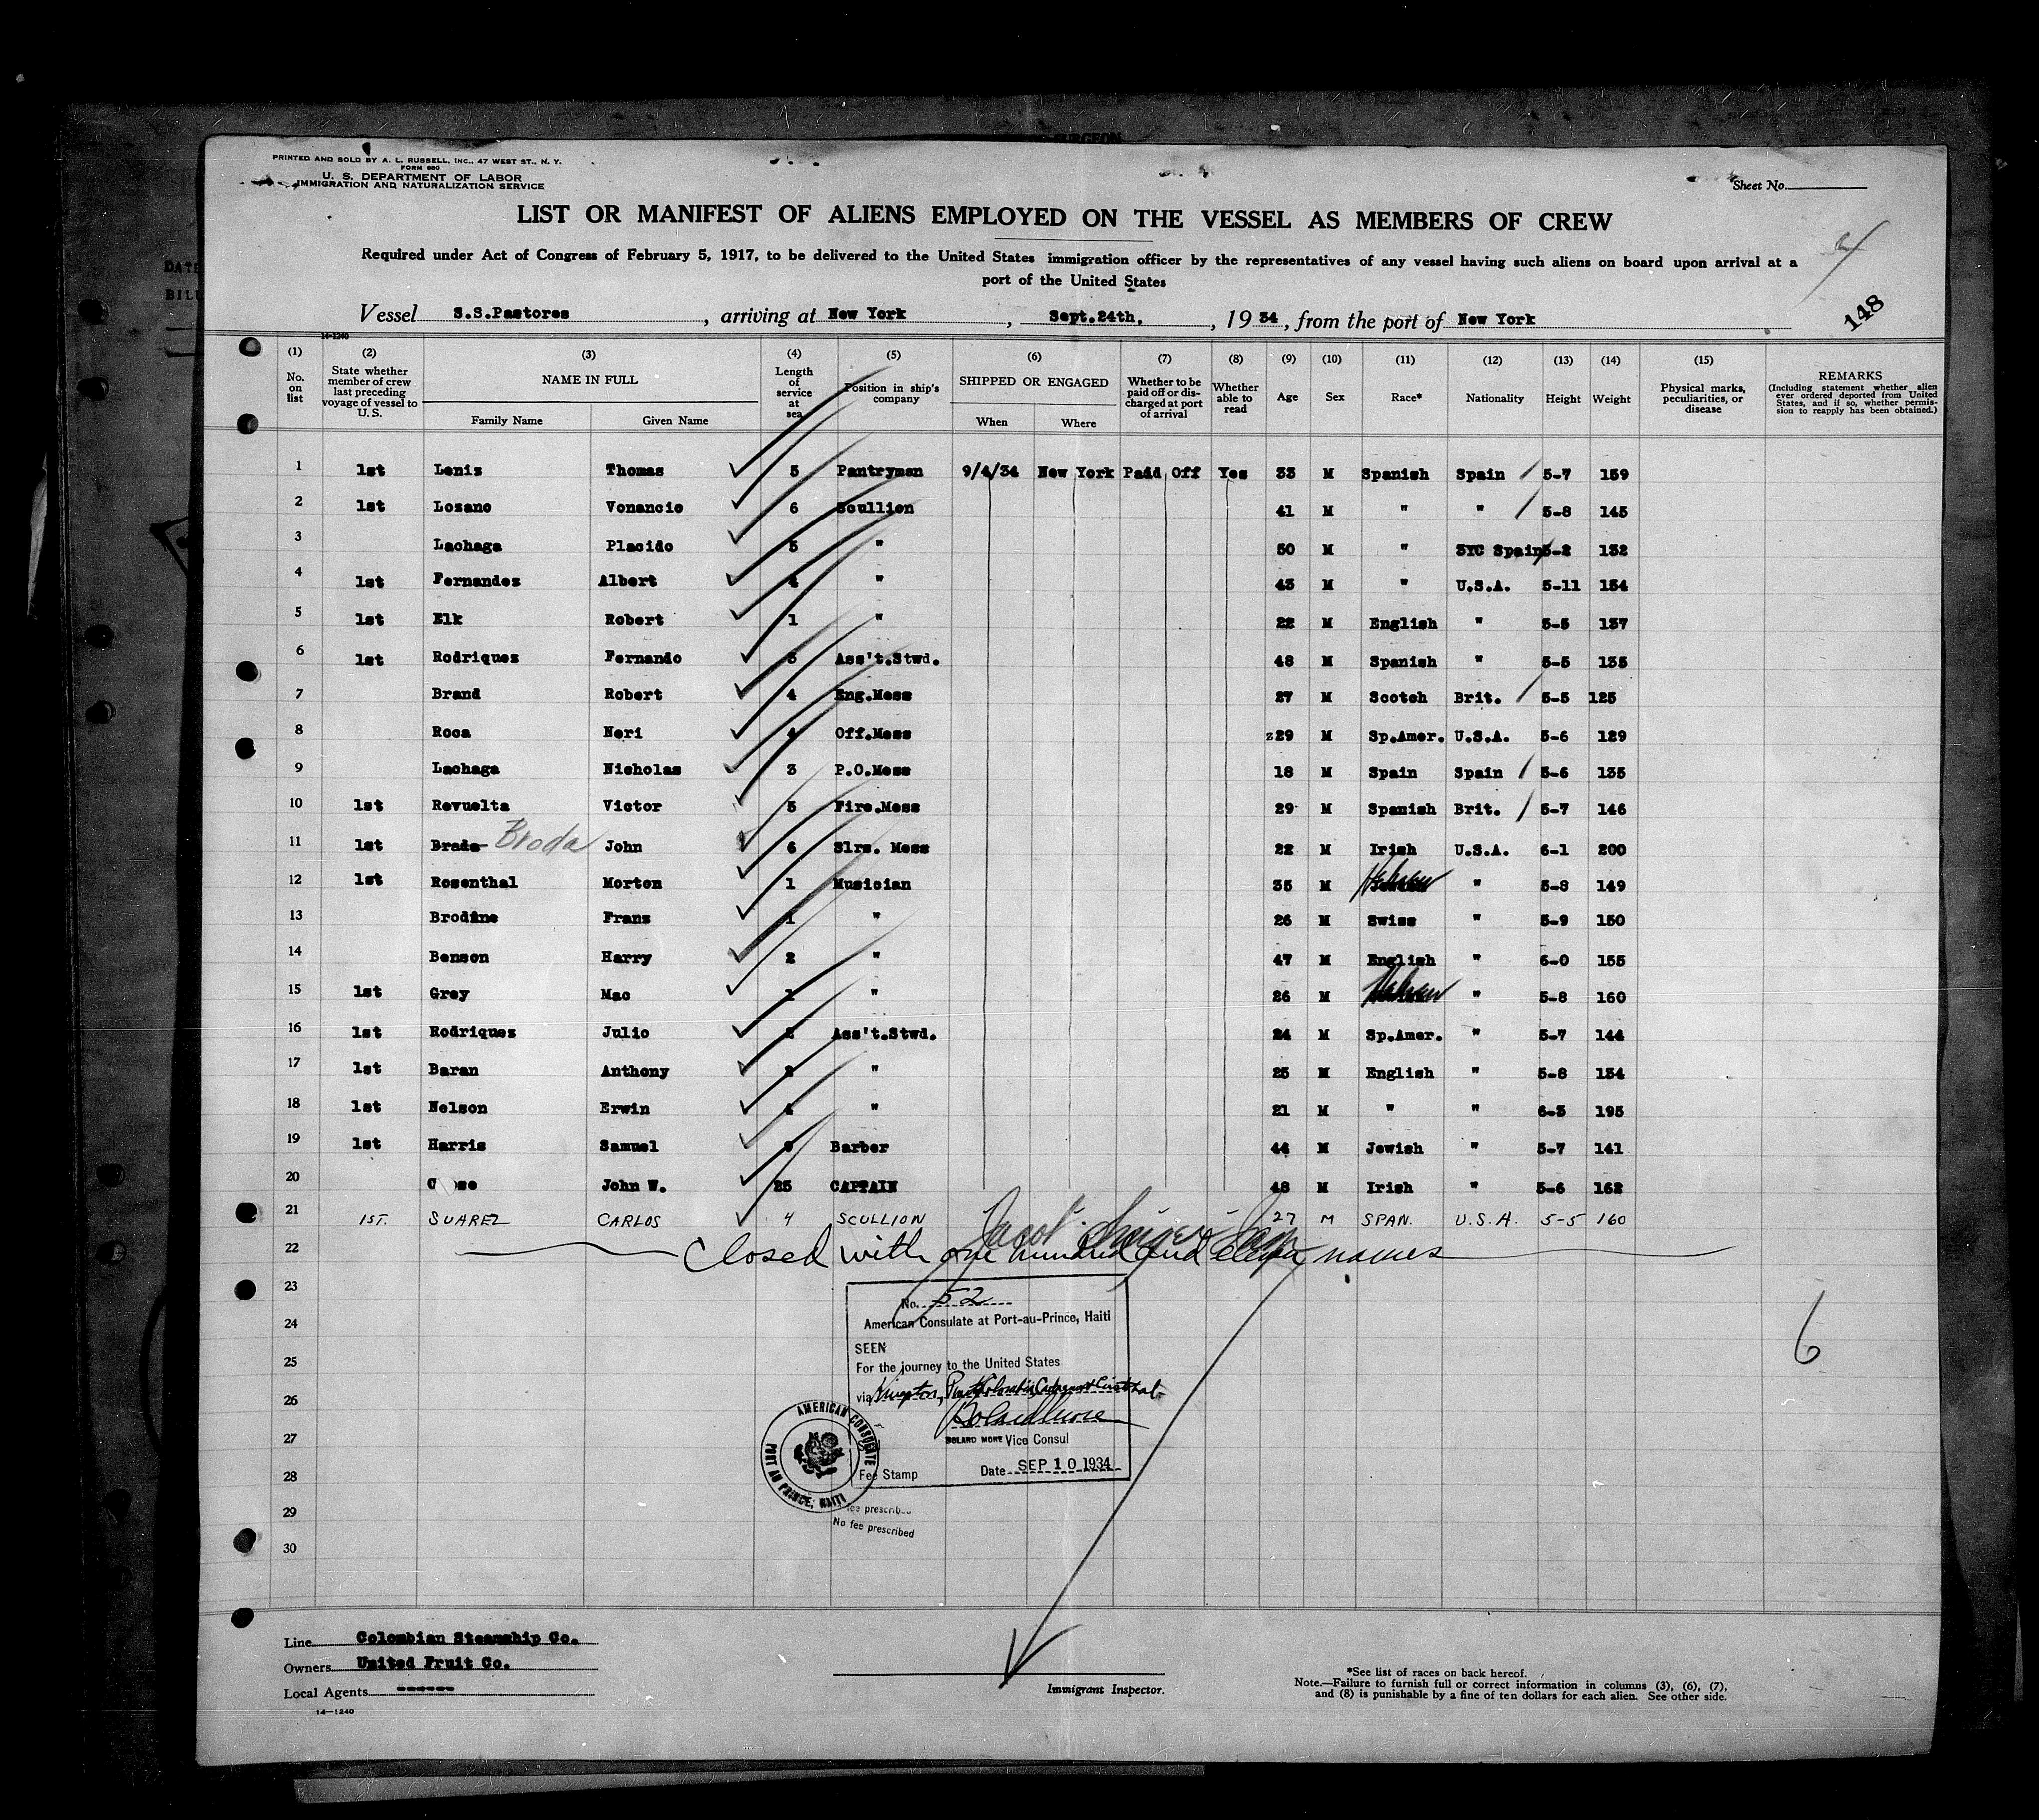 SURGEON
PRINTED AND SOLD BY A. L. RUSSELL, INC., 47 WEST ST., N. Y.
FORM 680
U. S. DEPARTMENT OF LABOR
IMMIGRATION AND NATURALIZATION SERVICE
Sheet No.
LIST OR MANIFEST OF ALIENS EMPLOYED ON THE VESSEL AS MEMBERS OF CREW
Required under Act of Congress of February 5, 1917, to be delivered to the United States immigration officer by the representatives of any vessel having such aliens on board upon arrival at a
port of the United States
DATE
BILL
148
Vessel S.S.Pastores, arriving at New York, Sept.24th, 1934, from the port of New York
14-1240
(1) No. on list (2) State whether member of crew last preceding voyage of vessel to U. S. (3) NAME IN FULL Family Name Given Name (4) Length of service at sea (5) Position in ship's company (6) SHIPPED OR ENGAGED When Where (7) Whether to be paid off or discharged at port of arrival (8) Whether able to read (9) Age (10) Sex (11) Race* (12) Nationality (13) Height (14) Weight (15) Physical marks, peculiarities, or disease REMARKS (Including statement whether alien ever ordered deported from United States, and if so, whether permission to reapply has been obtained.)
1 1st Lenis Thomas 5 Pantryman 9/4/34 New York Paid Off Yes 33 M Spanish Spain 5-7 159
2 1st Lozano Vonancio 6 Scullion 41 M " " 5-8 145
3 Lachaga Placido 5 " 50 M " SYC Spain 5-2 132
4 1st Fernandez Albert 4 " 43 M " U.S.A. 5-11 154
5 1st Elk Robert 1 " 22 M English " 5-5 137
6 1st Rodriquez Fernando 5 Ass't.Stwd. 48 M Spanish " 5-5 135
7 Brand Robert 4 Eng.Mess 27 M Scotch Brit. 5-5 125
8 Roca Neri 4 Off.Mess z29 M Sp.Amer. U.S.A. 5-6 129
9 Lachaga Nicholas 3 P.O.Mess 18 M Spain Spain 5-6 135
10 1st Revuelta Victor 5 Fire.Mess 29 M Spanish Brit. 5-7 146
11 1st Brada Broda John 6 Slrs. Mess 22 M Irish U.S.A. 6-1 200
12 1st Rosenthal Morton 1 Musician 35 M Hebrew " 5-8 149
13 Brodine Franz 1 " 26 M Swiss " 5-9 150
14 Benson Harry 2 " 47 M English " 6-0 155
15 1st Grey Mac 1 " 26 M Hebrew " 5-8 160
16 1st Rodriquez Julio Ass't.Stwd. 24 M Sp.Amer. " 5-7 144
17 1st Baran Anthony 2 " 25 M English " 5-8 134
18 1st Nelson Erwin 4 " 21 M " " 6-3 195
19 1st Harris Samuel Barber 44 M Jewish " 5-7 141
20 John W. 25 CAPTAIN 48 M Irish " 5-6 162
21 1ST. SUAREZ CARLOS 4 SCULLION 27 M SPAN. U.S.A. 5-5 160
22 Closed with one hundred and eleven names
23
24
25
26
27
28
29
30
No. 52
American Consulate at Port-au-Prince, Haiti
SEEN
For the journey to the United States
via Kingston,
BOLARD MORE Vice Consul
Fee Stamp Date SEP 10 1934
AMERICAN CONSULATE
PORT AU PRINCE, HAITI
fee prescribed
No fee prescribed
6
Line Colombian Steamship Co.
Owners United Fruit Co.
Local Agents ------
14-1240
Immigrant Inspector.
*See list of races on back hereof.
Note.—Failure to furnish full or correct information in columns (3), (6), (7),
and (8) is punishable by a fine of ten dollars for each alien. See other side.